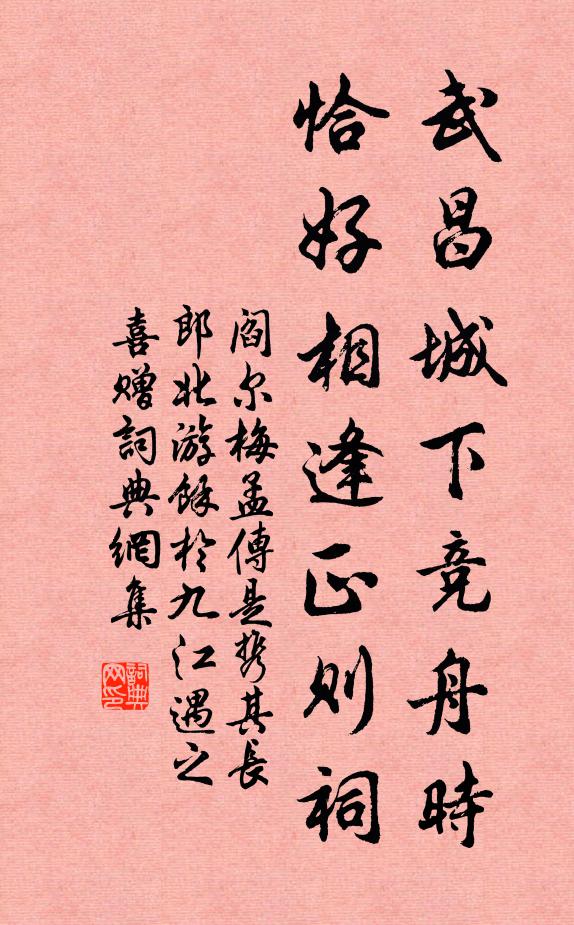 武昌城下竞舟時
恰好相逢正則祠
阎尔梅孟傳是携其長
郎北游餘於九江遇之
喜贈詞典網集
詞典
网印